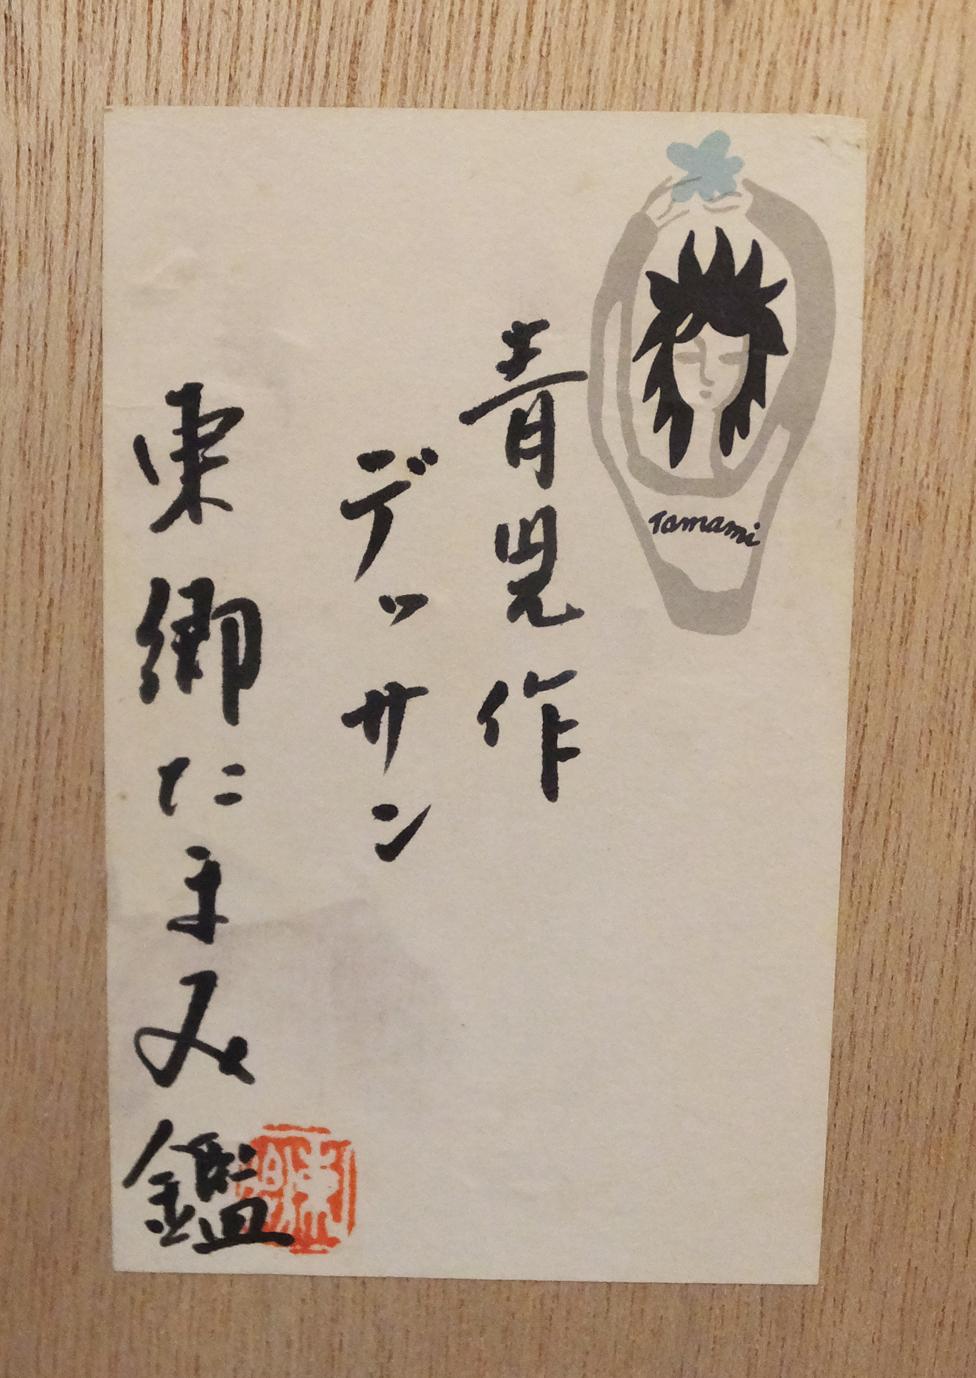 Tamami
青児作
デッサン
東郷たまみ鑑